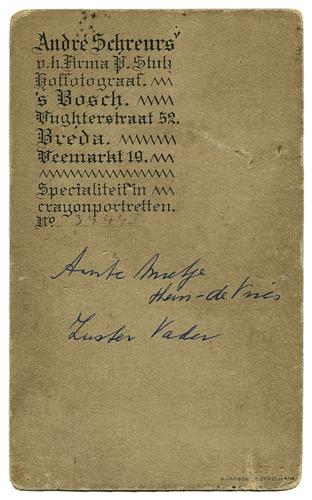 André Schreurs
v.h. Firma P. Stutz
Hoffotograaf.
's Bosch.
Vughterstraat 52.
Breda.
Veemarkt 19.
Specialiteit in
crayonportretten.
No
Aante Mietje
Hein-de Vries
Zuster Vader